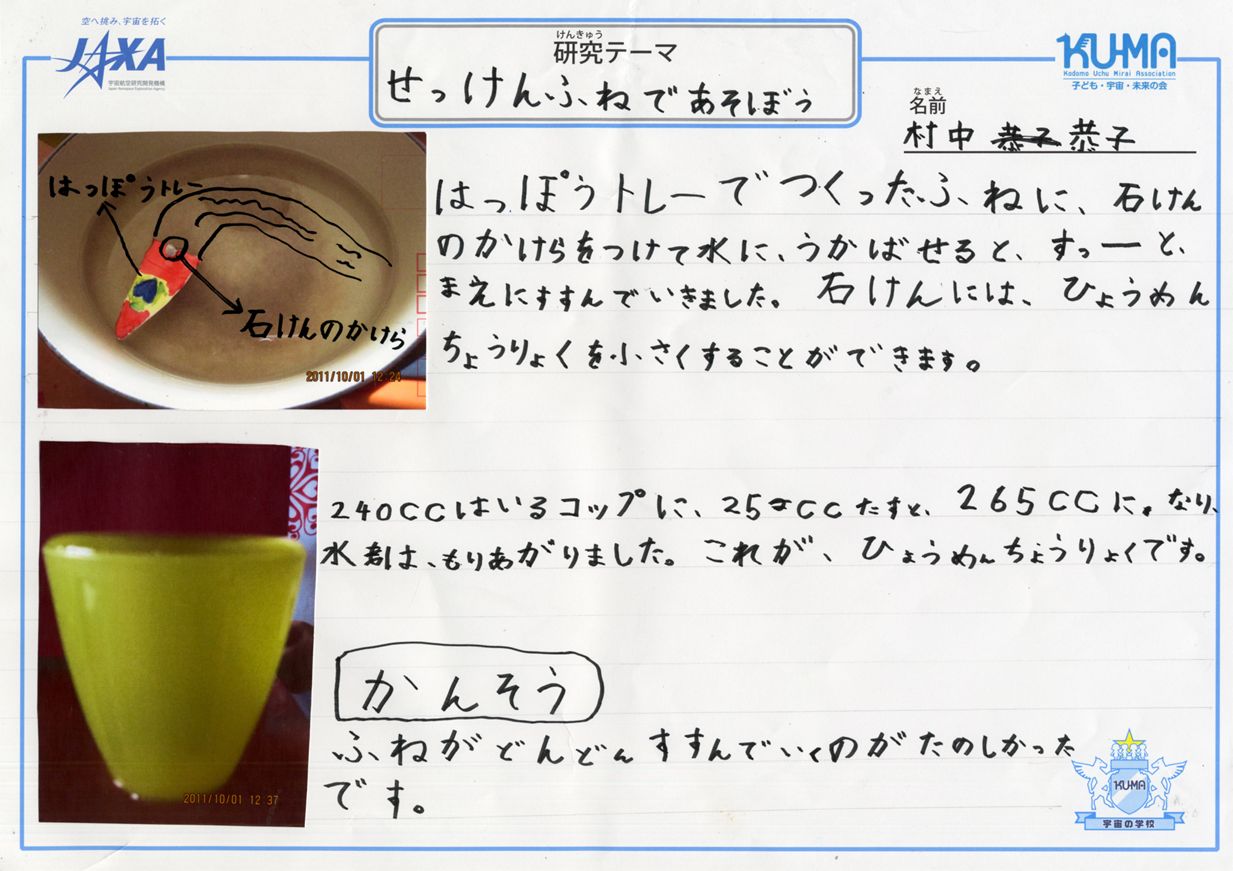 空へ挑み、宇宙を拓く
JAXA
宇宙航空研究開発機構
Japan Aerospace Exploration Agency
けんきゅう
研究テーマ
せっけんふねであそぼう
KU-MA
Kodomo Uchu Mirai Association
子ども・宇宙・未来の会
なまえ
名前
村中 恭子 恭子
はっぽうトレー
石けんのかけら
2011/10/01 12:24
はっぽうトレーでつくったふねに、石けん
のかけらをつけて水に、うかばせると、すっーと、
まえにすすんでいきました。石けんには、ひょうめん
ちょうりょくを小さくすることができます。
240CCはいるコップに、25CCたすと、265CCに、なり、
水は、もりあがりました。これが、ひょうめんちょうりょくです。
2011/10/01 12:37
かんそう
ふねがどんどんすすんでいくのがたのしかった
です。
KU-MA
宇宙の学校